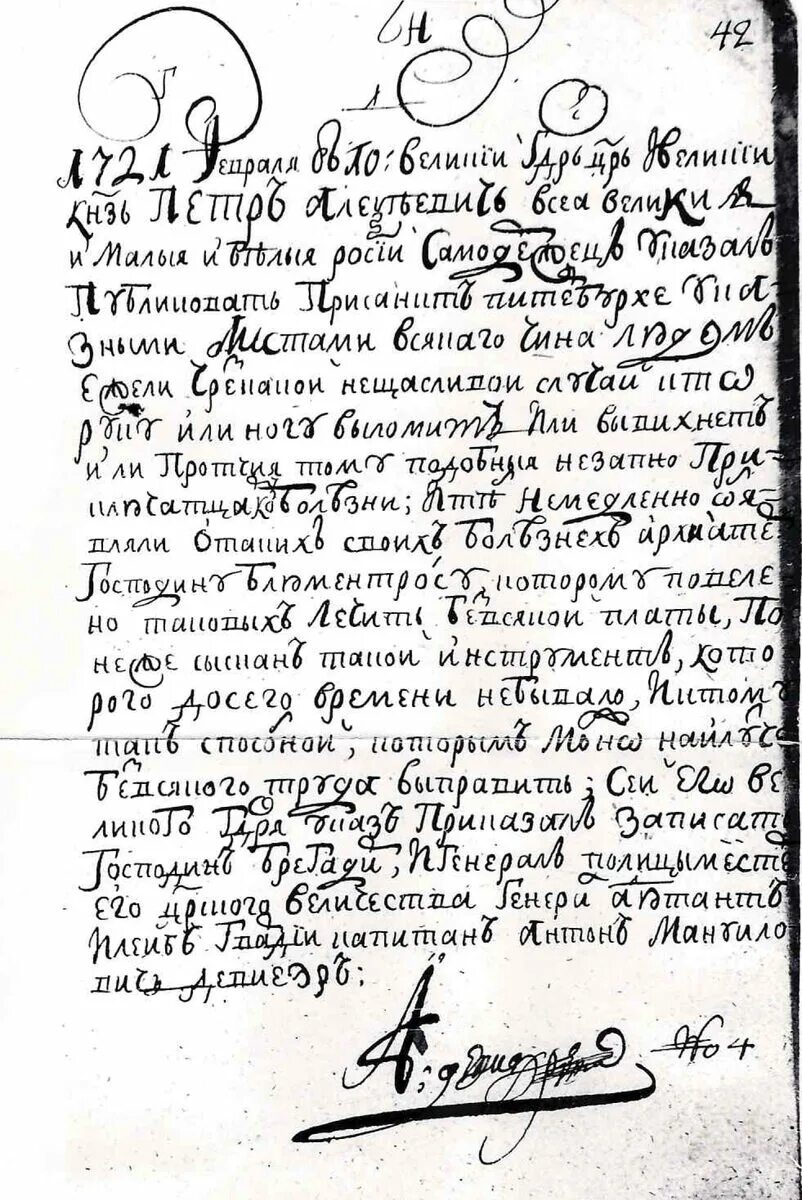 42
1721 Февраля въ 10: великїи Гдрь црь Ивеликїи
кнзь ПЕТРЪ Алеѯѣевичь всеа великиꙗ
и Малыя и бѣлыя росїи Самодержецъ Указалъ
Публиковать Присанктъ питеръбурхе Ука-
зными Листами всякаго чина людемъ
ежели чрез какой нещасливои случаи кто ѡ
руку или ногу выломитъ Или вывихнетъ
и ли Протчия тому подобныя незапно При-
ключатца болѣзни; Итѣ Немедленно ѡбъя-
вляли Отакихъ своихъ болѣзнехъ архиате
Господину блюментросу, которому повеле
но таковыхъ лечить безвсякой платы, По
неже сысканъ такой инструментъ, кото
рого досего времени небывало, Иктому
такъ способной, которымъ Можно наилуч
безвсякого труда выправить; Сеи Его ве
ликого Гдря указъ Приказалъ Записать
Господинъ брегади, Игенералъ полицымѣсте
Его цршого величества Генера адютантъ
Илеибъ Гвадїи капитанъ антонъ Мануило
вичь девиеръ:
No 4